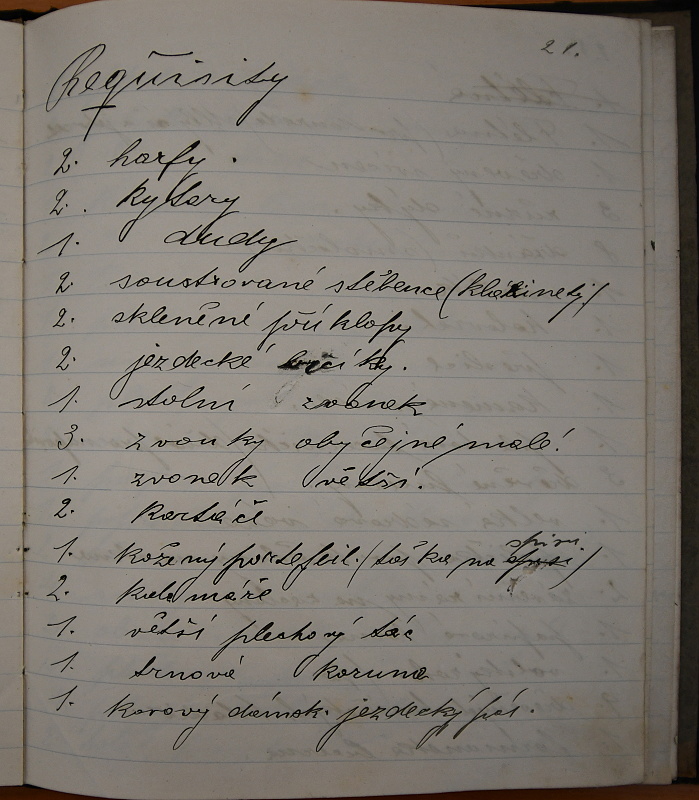 21.
Requisity
2. harfy.
2. kytary
1. dudy
2. soustrované stébence (klarinety)
2. skleněné příklopy
2. jezdecké bičíky.
1. stolní zvonek
3. zvonky obyčejné malé.
1. zvonek větší.
2. kartáče
1. kožený portefeil. (taška na spisi)
2. kalamáře
1. větší plechový tác
1. trnová koruna
1. kovový dámsk. jezdecký